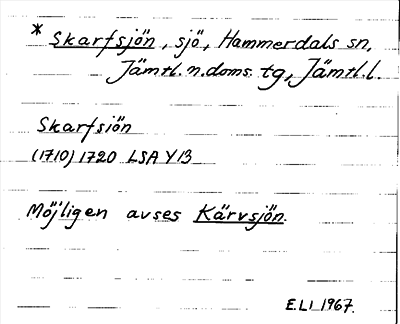 * Skarfsjön, sjö, Hammerdals sn,
Jämtl. n. doms. tg, Jämtl. l.
Skarfsiön
(1710) 1720 LSA Y 13
Möjligen avses Kärvsjön.
E.LI 1967.